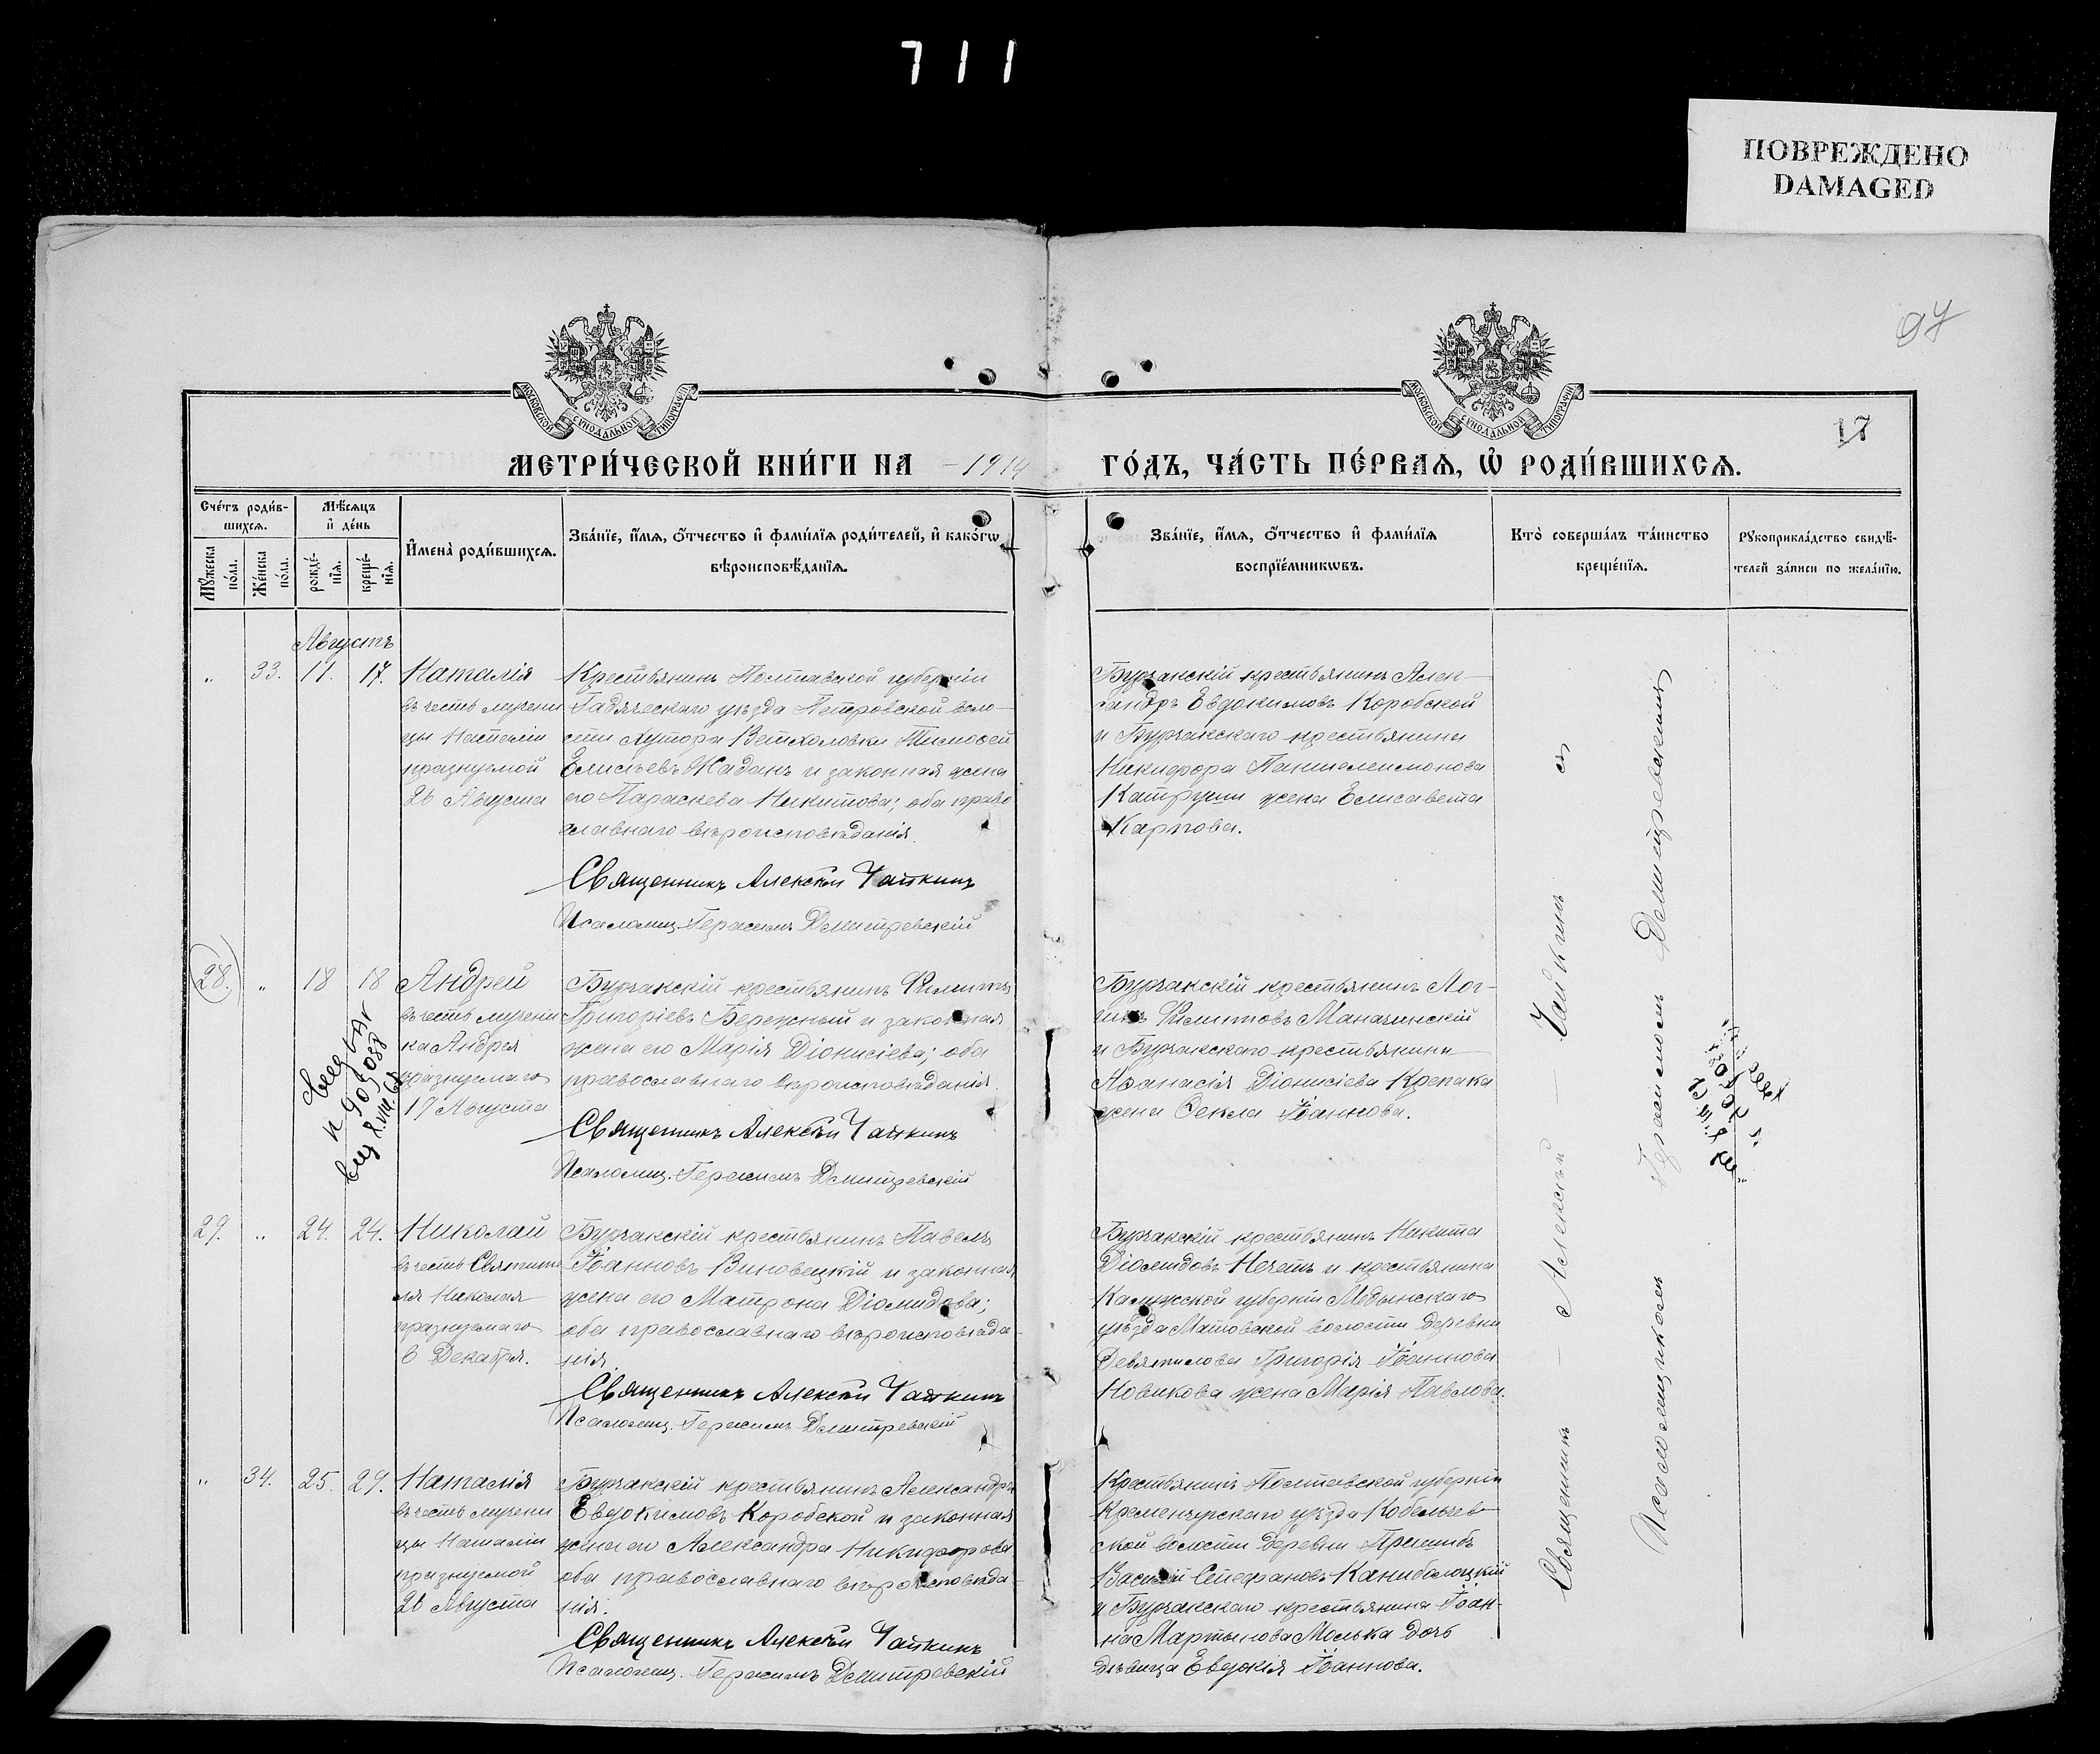 711
ПОВРЕЖДЕНО
DAMAGED
97
МОСКОВСКОЙ СѴНОДАЛЬНОЙ ТИПОГРАФІИ
МОСКОВСКОЙ СѴНОДАЛЬНОЙ ТИПОГРАФІИ
17
МЕТРИ́ЧЕСКОЙ КНИ́ГИ НА 1914 ГО́ДЪ, ЧА́СТЬ ПЕ́РВАѦ, Ѡ РОДИ́ВШИХСѦ.
Сче́тъ роди́в-
шихсѧ.
Мѣ́сѧцъ
и҆ де́нь
Мꙋ́жеска
по́ла.
Же́нска
по́ла.
рожде́-
нїѧ.
креще́-
нїѧ.
И҆мена̀ роди́вшихсѧ.
Зва́нїе, и҆́мѧ, ѻ҆́тчество и҆ фами́лїѧ роди́телей, и҆ како́гѡ
вѣроисповѣ́данїѧ.
Зва́нїе, и҆́мѧ, ѻ҆́тчество и҆ фами́лїѧ
воспрїе́мникѡвъ.
Кто̀ соверша́лъ та́инство
креще́нїѧ.
Рꙋкоприкла́дство свидѣ́-
телей за́писи по жела́нїю.
Августъ
" 33. 11. 17. Наталія
въ честь мучени
цы Наталіи
празнуемой
26 Августа
Крестьянинъ Полтавской губерніи
Гадяческаго уѣзда Петровской воло-
сти хутора Ветхоловки Тимофей
Елисѣевъ Жаданъ и законная жена
его Параскева Никитова; оба право
славнаго вѣроисповѣданія.
Священникъ Алексѣй Чайкинъ
Псаломщ. Герасимъ Дмитревскій
Бурчакскій крестьянинъ Алек-
сандръ Евдокимовъ Коробской
и Бурчакскаго крестьянина
Никифора Пантелеимонова
Катруши жена Елисавета
Карпова.
28. " 18 18 Андрей
въ честь мучени
ка Андрея
празнуемаго
19 Августа
Бурчакскій крестьянинъ Филиппъ
Григоріевъ Бережный и законная
жена его Марія Діонисіева; оба
православнаго вѣроисповѣданія.
Священникъ Алексѣй Чайкинъ
Псаломщ. Герасимъ Дмитревскій
Бурчакскій крестьянинъ Лог-
инъ Филипповъ Маначинскій
и Бурчакскаго крестьянина
Аѳанасія Діонисіева Крепака
жена Ѳекла Іоаннова.
29. " 24. 24. Николай
въ честь Святите
ля Николая
празнуемаго
6 Декабря.
Бурчакскій крестьянинъ Павелъ
Іоанновъ Виновецкій и законная
жена его Матрона Діомидова;
оба православнаго вѣроисповѣда-
нія.
Священникъ Алексѣй Чайкинъ
Псаломщ. Герасимъ Дмитревскій
Бурчакскій крестьянинъ Никита
Діомидовъ Нечетъ и крестьянина
Калужской губерніи Медынскаго
уѣзда Матовской волости деревни
Девятилова Григорія Іоаннова
Новикова жена Марія Павлова.
" 34. 25. 29. Наталія
въ честь мучени
цы Наталіи
празнуемой
26 Августа
Бурчакскій крестьянинъ Александръ
Евдокимовъ Коробской и законная
жена его Александра Никифорова
оба православнаго вѣроисповѣда-
нія.
Священникъ Алексѣй Чайкинъ
Псаломщ. Герасимъ Дмитревскій
Крестьянинъ Полтавской губерніи
Кременчугскаго уѣзда Кобелячев-
ской волости деревни Пришибъ
Василій Стефановъ Канибалоцкій
и Бурчакскаго крестьянина Іоан-
на Мартынова Моська дочь
дѣвица Евдокія Іоаннова.
Священникъ — Алексѣй — Чайкинъ съ
Псаломщикомъ Герасимомъ Дмитревскимъ